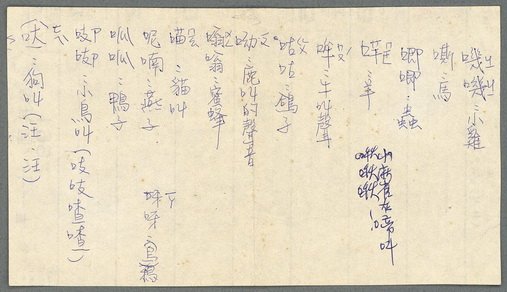 嘰嘰:小雞
嘶:馬
唧唧:蟲
咩:羊
小麻雀在
叫
啾啾啾
哞:牛叫聲
咕咕:鴿子
呦:鹿叫的聲音
嗡嗡:蜜蜂
喵:貓叫
呢喃:燕子
呀呀
呱呱:鴨子
:小鳥叫(吱吱喳喳)
(吠):狗叫(汪.汪)